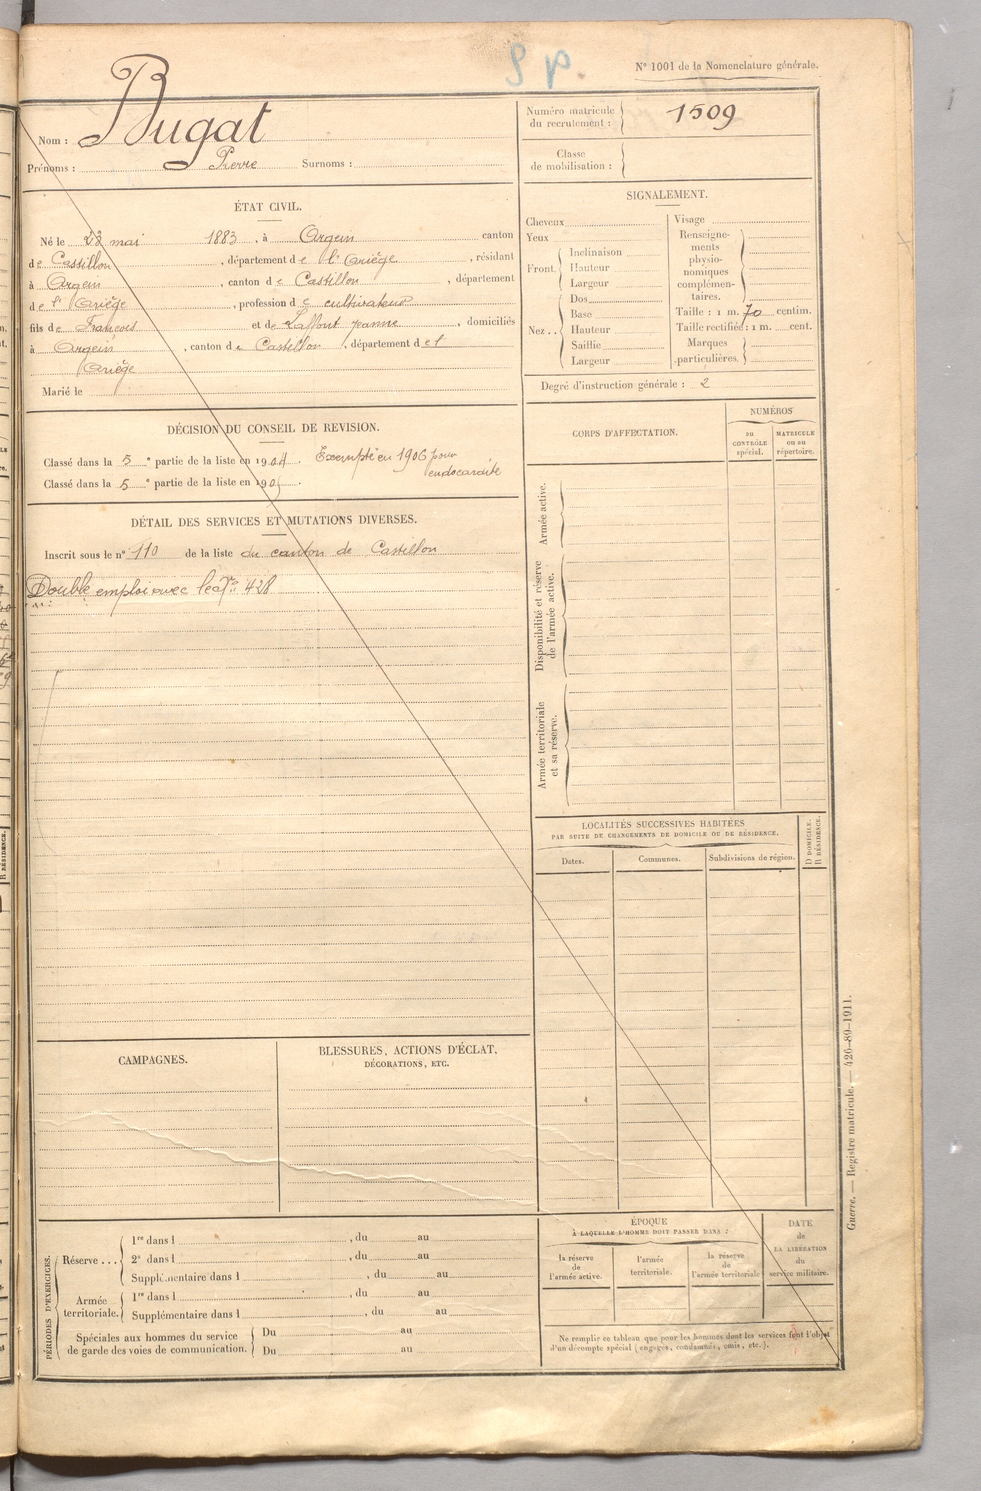 S P.
N° 1001 de la Nomenclature générale.
Nom : Bugat
Prénoms : Pierre Surnoms :
Numéro matricule du recrutement : 1509
Classe de mobilisation :
ÉTAT CIVIL.
Né le 23 mai 1883, à Argein canton
de Castillon, département de l'Ariège, résidant
à Argein, canton de Castillon, département
de l'Ariège, profession de cultivateur
fils de François et de Laffont Jeanne, domiciliés
à Argein, canton de Castellon, département de l
Ariège
Marié le
SIGNALEMENT.
Cheveux
Yeux
Front. Inclinaison
Hauteur
Largeur
Nez.. Dos
Base
Hauteur
Saillie
Largeur
Visage
Renseignements physionomiques complémentaires.
Taille : 1 m. 70 centim.
Taille rectifiée : 1 m. cent.
Marques particulières.
Degré d'instruction générale : 2
DÉCISION DU CONSEIL DE REVISION.
Classé dans la 5e partie de la liste en 1904. Exempté en 1906 pour
endocardite
Classé dans la 5e partie de la liste en 1905.
DÉTAIL DES SERVICES ET MUTATIONS DIVERSES.
Inscrit sous le n° 110 de la liste du canton de Castillon
Double emploi avec le No 428
CORPS D'AFFECTATION.
NUMÉROS
DU CONTRÔLE spécial.
MATRICULE ou au répertoire.
Armée active.
Disponibilité et réserve de l'armée active.
Armée territoriale et sa réserve.
LOCALITÉS SUCCESSIVES HABITÉES
PAR SUITE DE CHANGEMENTS DE DOMICILE OU DE RÉSIDENCE.
Dates. Communes. Subdivisions de région.
D DOMICILE.
R RÉSIDENCE.
CAMPAGNES.
BLESSURES, ACTIONS D'ÉCLAT,
DÉCORATIONS, ETC.
PÉRIODES D'EXERCICES.
Réserve... 1re dans l , du au
2e dans l , du au
Supplémentaire dans l , du au
Armée territoriale. 1re dans l , du au
Supplémentaire dans l , du au
Spéciales aux hommes du service Du au
de garde des voies de communication. Du au
ÉPOQUE
À LAQUELLE L'HOMME DOIT PASSER DANS :
la réserve de l'armée active.
l'armée territoriale.
la réserve de l'armée territoriale
DATE
de
LA LIBÉRATION
du
service militaire.
Ne remplir ce tableau que pour les hommes dont les services font l'objet
d'un décompte spécial (engagés, condamnés, omis, etc.).
Guerre. — Registre matricule. — 426-89-1911.